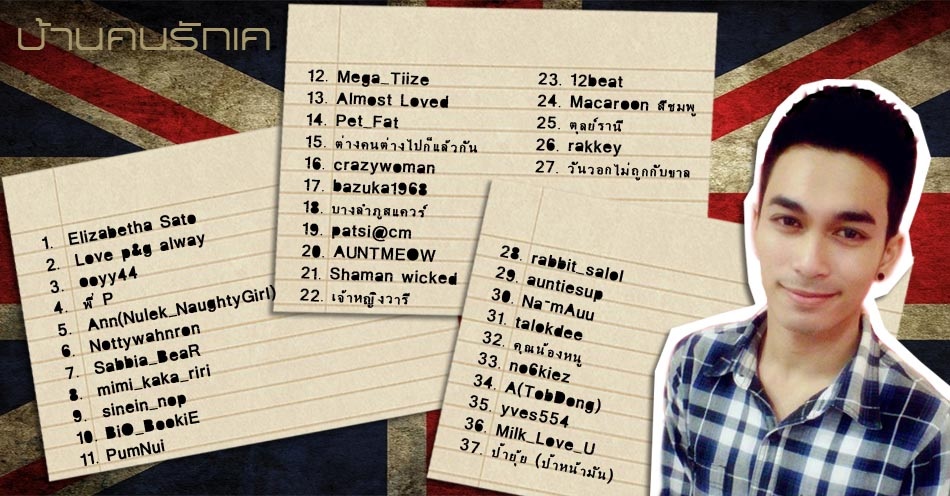 บ้านคนรักเค
1. Elizabetha Sato
2. Love p&g alway
3. ooyy44
4. พี่ P
5. Ann(Nulek_NaughtyGirl)
6. Nottywahnron
7. Sabbia_BeaR
8. mimi_kaka_riri
9. sinein_nop
10. BiO_BookiE
11. PumNui
12. Mega_Tiize
13. Almost Loved
14. Pet_Fat
15. ต่างคนต่างไปก็แล้วกัน
16. crazywoman
17. bazuka1968
18. บางลำภูสแควร์
19. patsi@cm
20. AUNTMEOW
21. Shaman wicked
22. เจ้าหญิงวารี
23. 12beat
24. Macaroon สีชมพู
25. ตุลย์รานี
26. rakkey
27. วันวอกไม่ถูกกับขาล
28. rabbit_salol
29. auntiesup
30. Na~mAuu
31. talokdee
32. คุณน้องหนู
33. no6kiez
34. A(TobDong)
35. yves554
36. Milk_Love_U
37. ป้ายุ้ย (ป้าหน้ามัน)